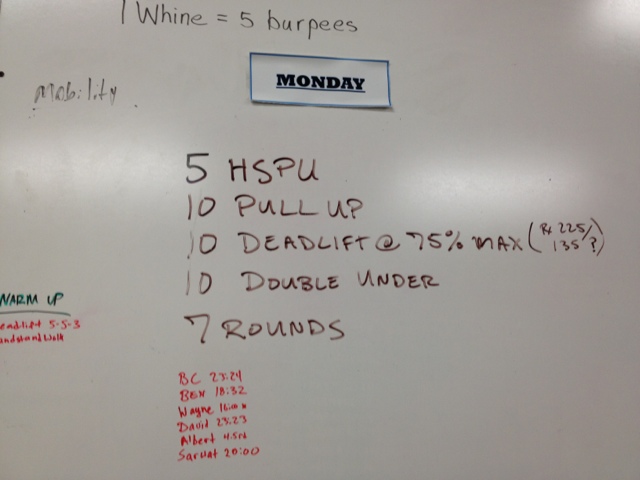 1 Whine = 5 burpees
MONDAY
Mobility
5 HSPU
10 PULL UP
10 DEADLIFT @ 75% MAX (Rx 225/
135 ?)
10 DOUBLE UNDER
7 ROUNDS
WARM UP
eadlift 5-5-3
andstand Walk
BC 23:24
BEN 18:32
Wayne
David 23:23
Albert
Sarwat 20:00